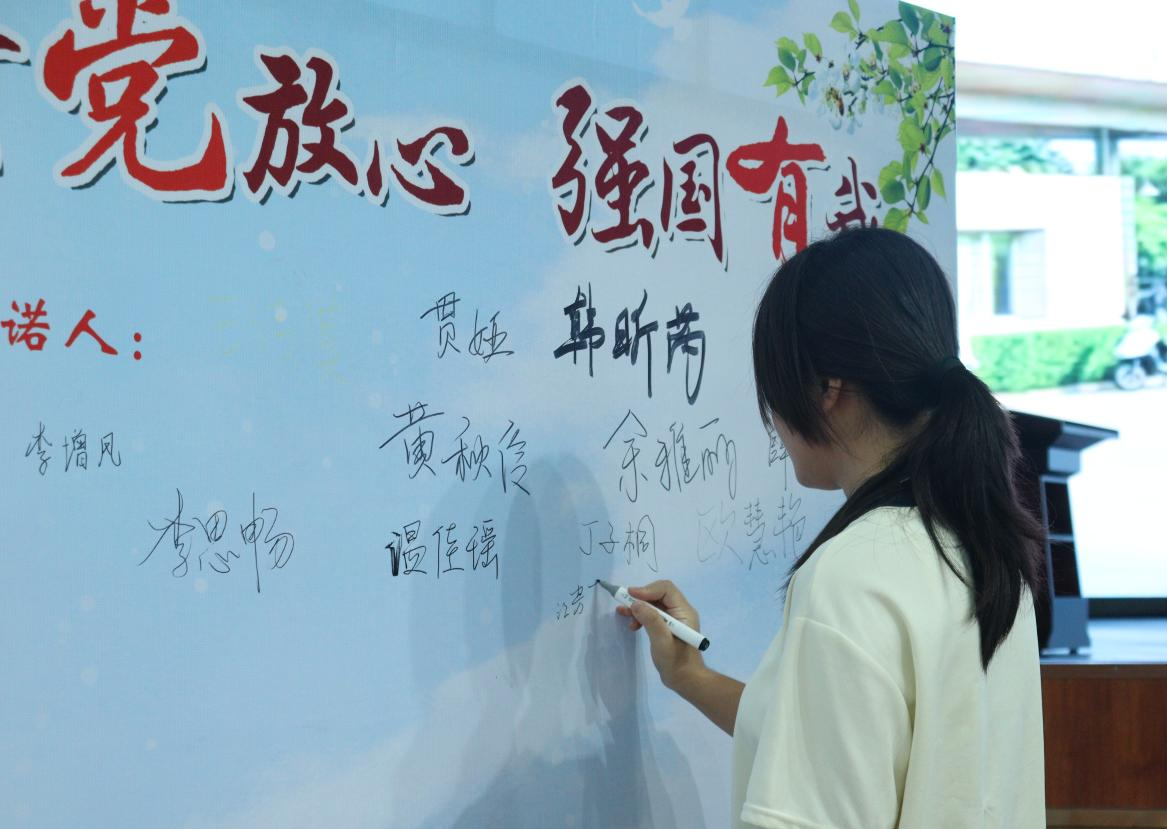 党放心 强国有我
诺人：
贾娅 韩昕芮
李增凤 黄秋俊 余雅丽
李思畅 温佳瑶 丁子桐 欧慧艳